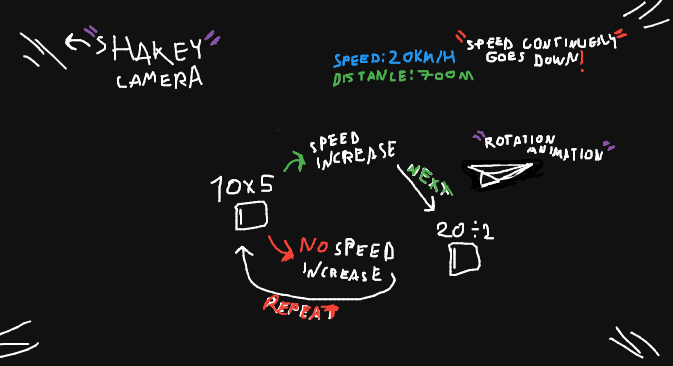 "SHAKEY"
CAMERA
SPEED: 20KM/H
DISTANCE: 700M
"SPEED CONTINUESLY"
GOES DOWN!
SPEED
INCREASE
"ROTATION
ANIMATION"
10x5
NEXT
20÷2
NO SPEED
INCREASE
REPEAT